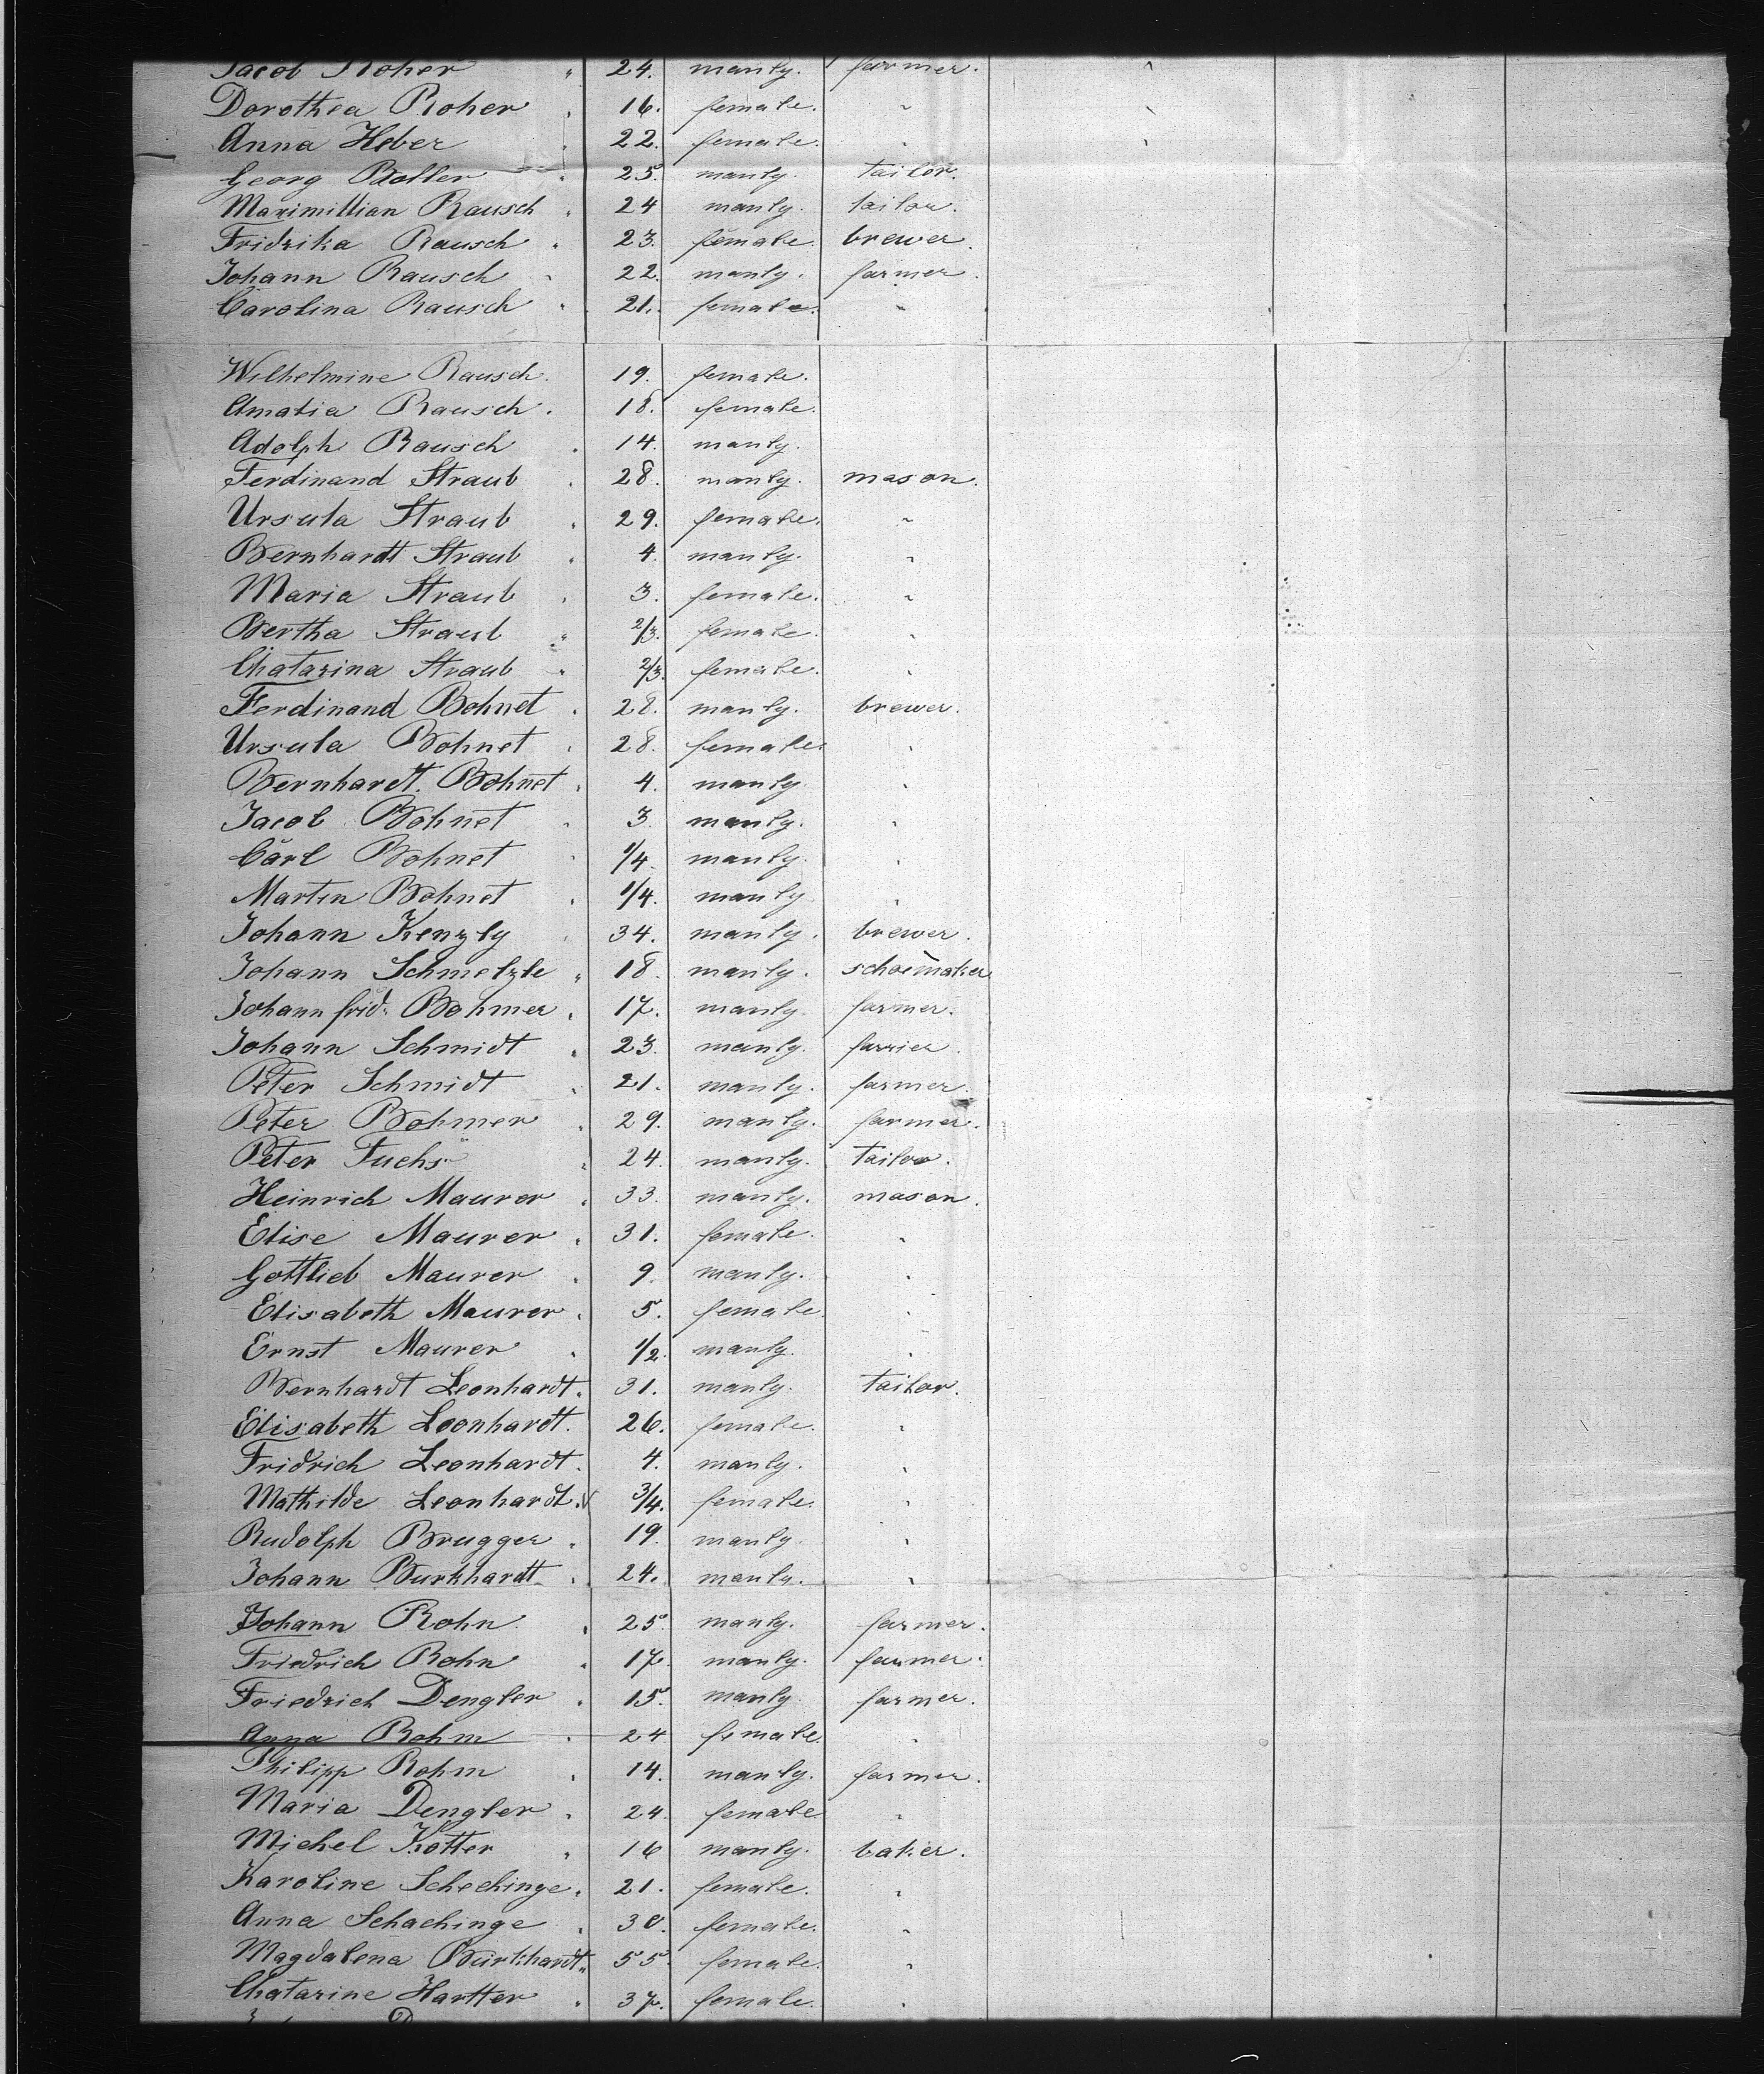 Jacob Roher " 24. manly. farmer.
Dorothea Roher " 16. female. "
Anna Heber " 22. female. "
Georg Boller " 25. manly. tailor.
Maximillian Rausch " 24 manly. tailor.
Fridrika Rausch " 23. female. brewer.
Johann Rausch " 22. manly. farmer.
Carolina Rausch " 21. female. "
Wilhelmine Rausch. 19. female.
Amalia Rausch. 18. female.
Adolph Rausch . 14. manly.
Ferdinand Straub . 28. manly. mason.
Ursula Straub " 29. female. "
Bernhardt Straub " 4. manly. "
Maria Straub " 3. female. "
Bertha Straub " 2/3. female. "
Chatarina Straub " 2/3. female. "
Ferdinand Bohnet . 28. manly. brewer.
Ursula Bohnet " 28. female. "
Bernhardt. Bohnet " 4. manly "
Jacob Bohnet " 3. manly. "
Carl Bohnet " 1/4. manly. "
Martin Bohnet " 1/4. manly "
Johann Kenzly " 34. manly. brewer.
Johann Schmelzle " 18. manly. schoemaker
Johann frid. Bohmer " 17. manly. farmer.
Johann Schmidt " 23. manly. farrier.
Peter Schmidt " 21. manly. farmer.
Peter Bohmer " 29. manly. farmer.
Peter Fuchs " 24. manly. tailor.
Heinrich Maurer " 33. manly. mason.
Elise Maurer " 31. female. "
Gottlieb Maurer " 9. manly. "
Elisabeth Maurer " 5. female "
Ernst Maurer " 1/2. manly. "
Bernhardt Leonhardt. 31. manly. tailor.
Elisabeth Leonhardt. 26. female. "
Fridrich Leonhardt. 4. manly. "
Mathilde Leonhardt. 3/4. female. "
Rudolph Brugger " 19. manly. "
Johann Burkhardt " 24. manly. "
Johann Rohn " 25. manly. farmer.
Friedrich Rohn " 17. manly. farmer.
Friedrich Dengler " 15. manly. farmer.
Anna Rohm " 24 female. "
Philipp Rohm " 14. manly. farmer.
Maria Dengler " 24. female "
Michel Kotter " 16 manly. baker.
Karoline Schechinge " 21. female. "
Anna Schachinge " 30. female. "
Magdalena Burkhardt " 55. female. "
Chatarine Hartter " 37. female. "